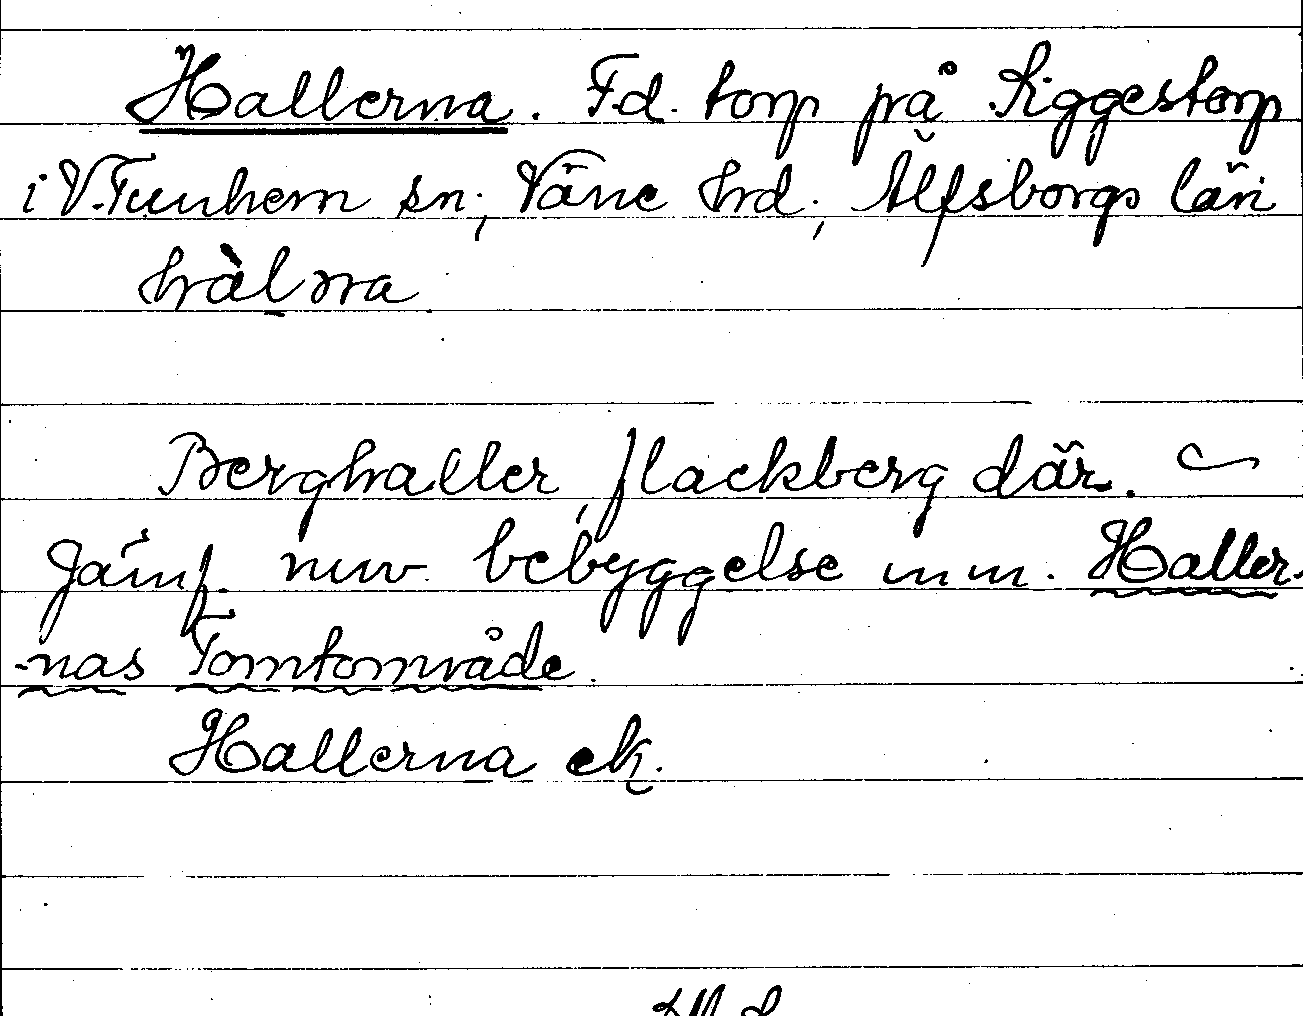 Hallerna. Fd. torp på Siggestorp
i V.Tunhem sn; Väne hrd; Älfsborgs län
hàlna
Berghaller, flackberg där.
Jämf. nuv. bebyggelse m m. Haller-
-nas Tomtområde.
Hallerna ek.